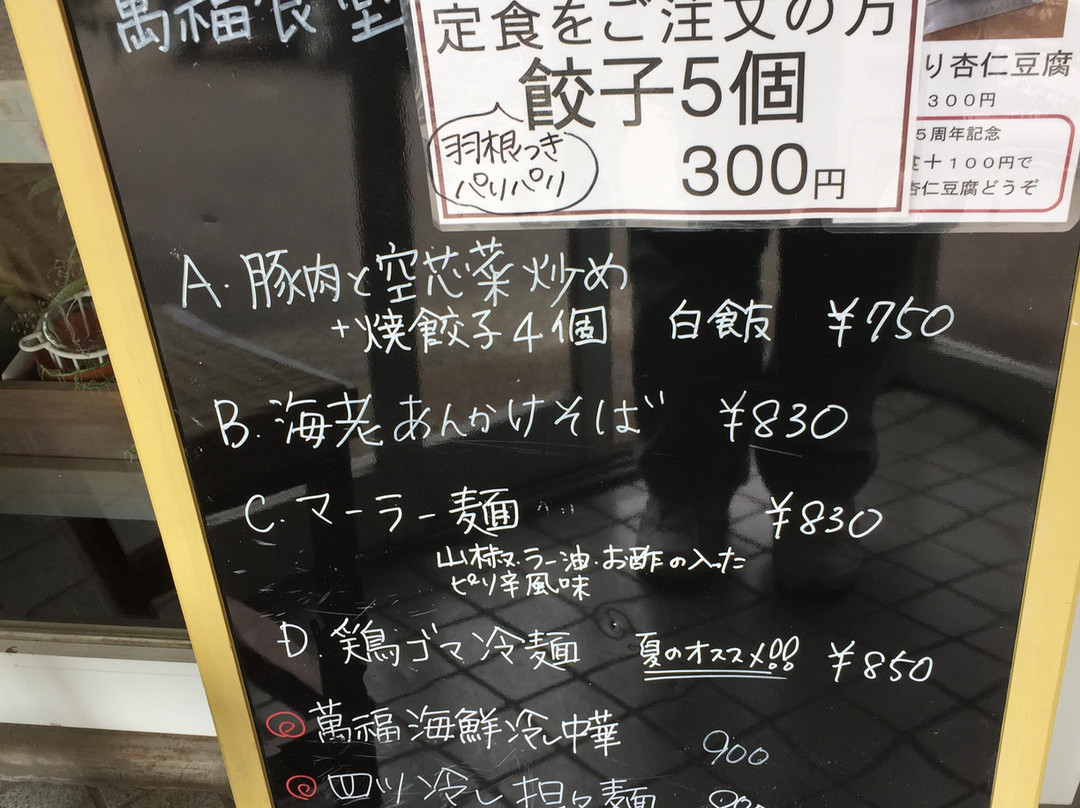 萬福食堂
定食をご注文の方
餃子5個
羽根つき
パリパリ
300円
り杏仁豆腐
300円
5周年記念
食+100円で
杏仁豆腐どうぞ
A. 豚肉と空芯菜炒め
+焼餃子4個 白飯 ¥750
B. 海老あんかけそば ¥830
C. マーラー麺 ¥830
山椒・ラー油・お酢の入った
ピリ辛風味
D. 鶏ゴマ冷麺 夏のオススメ!! ¥850
萬福海鮮冷し中華 900
四川冷し担々麺